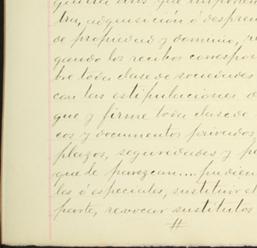 tra, adquisición ó despren
de propiedad y dominio, re
gando los recibos correspon
bre toda clase de sociedades
con las estipulaciones d
que y firme toda clase de
cos y documentos privados,
plazos, seguridades y p
que le parezcan... pudien
les ó especiales, sustituir el
parte, revocar sustitutos